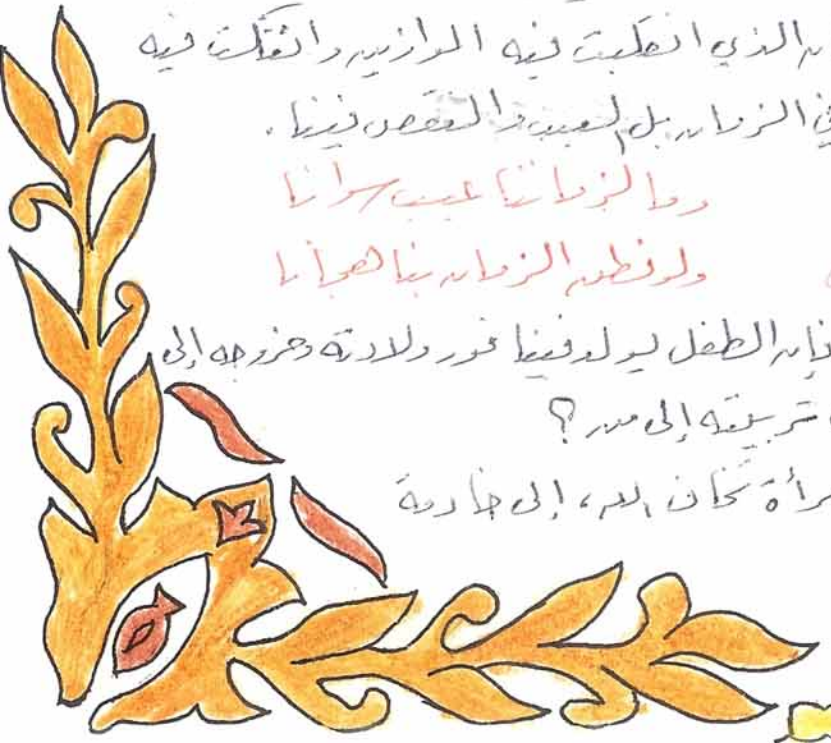 الذي انقلبت فيه الموازين وانفكت فيه
في الزمان بل العيب والنقص فينا.
وما لزماننا عيب سوانا
ولو نطق الزمان بنا هجانا
فإن الطفل يولد فينا فور ولادته وخروجه إلى
تربيته إلى من؟
تخاف الله، إلى خادمة